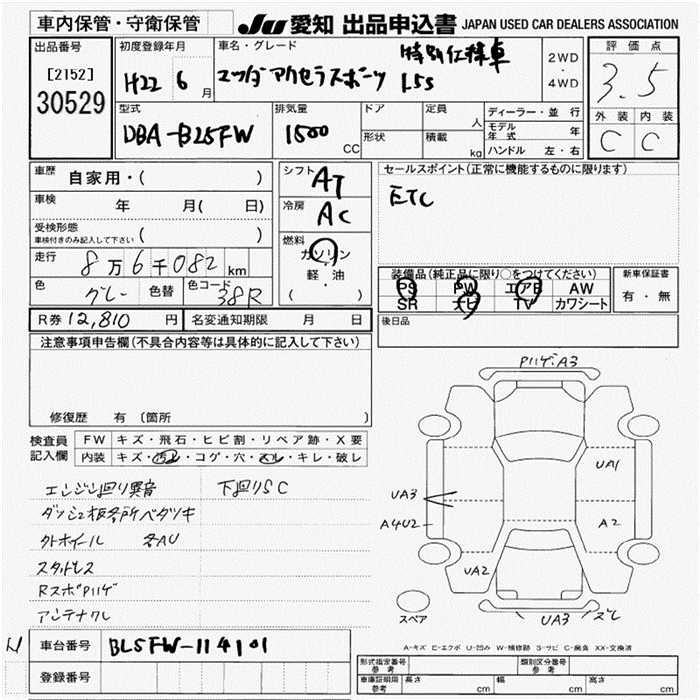 車内保管・守衛保管 JU 愛知 出品申込書 JAPAN USED CAR DEALERS ASSOCIATION
出品番号 [2152] 30529
初度登録年月 H22 6月
車名・グレード マツダ アクセラスポーツ 特別仕様車 15S
2WD・4WD
評価点 3.5
外装 内装
C C
型式 DBA-BL5FW
排気量 1500 CC
ドア
形状
定員 人
積載 kg
ディーラー・並行
モデル年式 年
ハンドル 左・右
車歴 自家用・( )
車検 年 月( 日)
受検形態
車検付きのみ記入して下さい ( )
走行 8万6千082km
色 グレー 色替 色コード 38R
シフト AT
冷房 AC
燃料 ガソリン
軽・油
( )
セールスポイント(正常に機能するものに限ります)
ETC
装備品(純正品に限り○をつけてください)
PS PW エアB AW
SR ナビ TV カワシート
新車保証書
有・無
R券 12,810円 名変通知期限 月 日
後日品
注意事項申告欄(不具合内容等は具体的に記入して下さい)
修復歴 有 〔箇所 〕
検査員記入欄
FW キズ・飛石・ヒビ割・リペア跡・X要
内装 キズ・汚レ・コゲ・穴・スレ・キレ・破レ
エンジン回り異音 下回りSC
ダッシュ板各所ベタツキ
外ホイール 各AU
スタッドレス
RスポPハゲ
アンテナクレ
Pハゲ・A3
UA1
UA3
A4U2
A2
UA2
UA3 ズレ
スペア
A-キズ E-エクボ U-凹み W-補修跡 S-サビ C-腐食 XX-交換済
車台番号 BL5FW-114101
登録番号
形式指定番号 参考
類別区分番号 参考
車庫証明用 参考 長さ cm 幅 cm 高さ cm